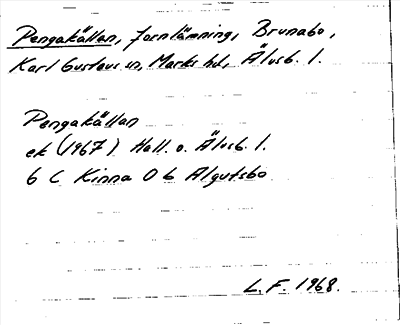 Pengakällan, fornlämning, Brunabo,
Karl Gustavs sn, Marks hd, Älvsb. l.
Pengakällan
ek (1967) Hall. o. Älvsb. l.
6 C Kinna 0 b Algutsbo
L.F. 1968.